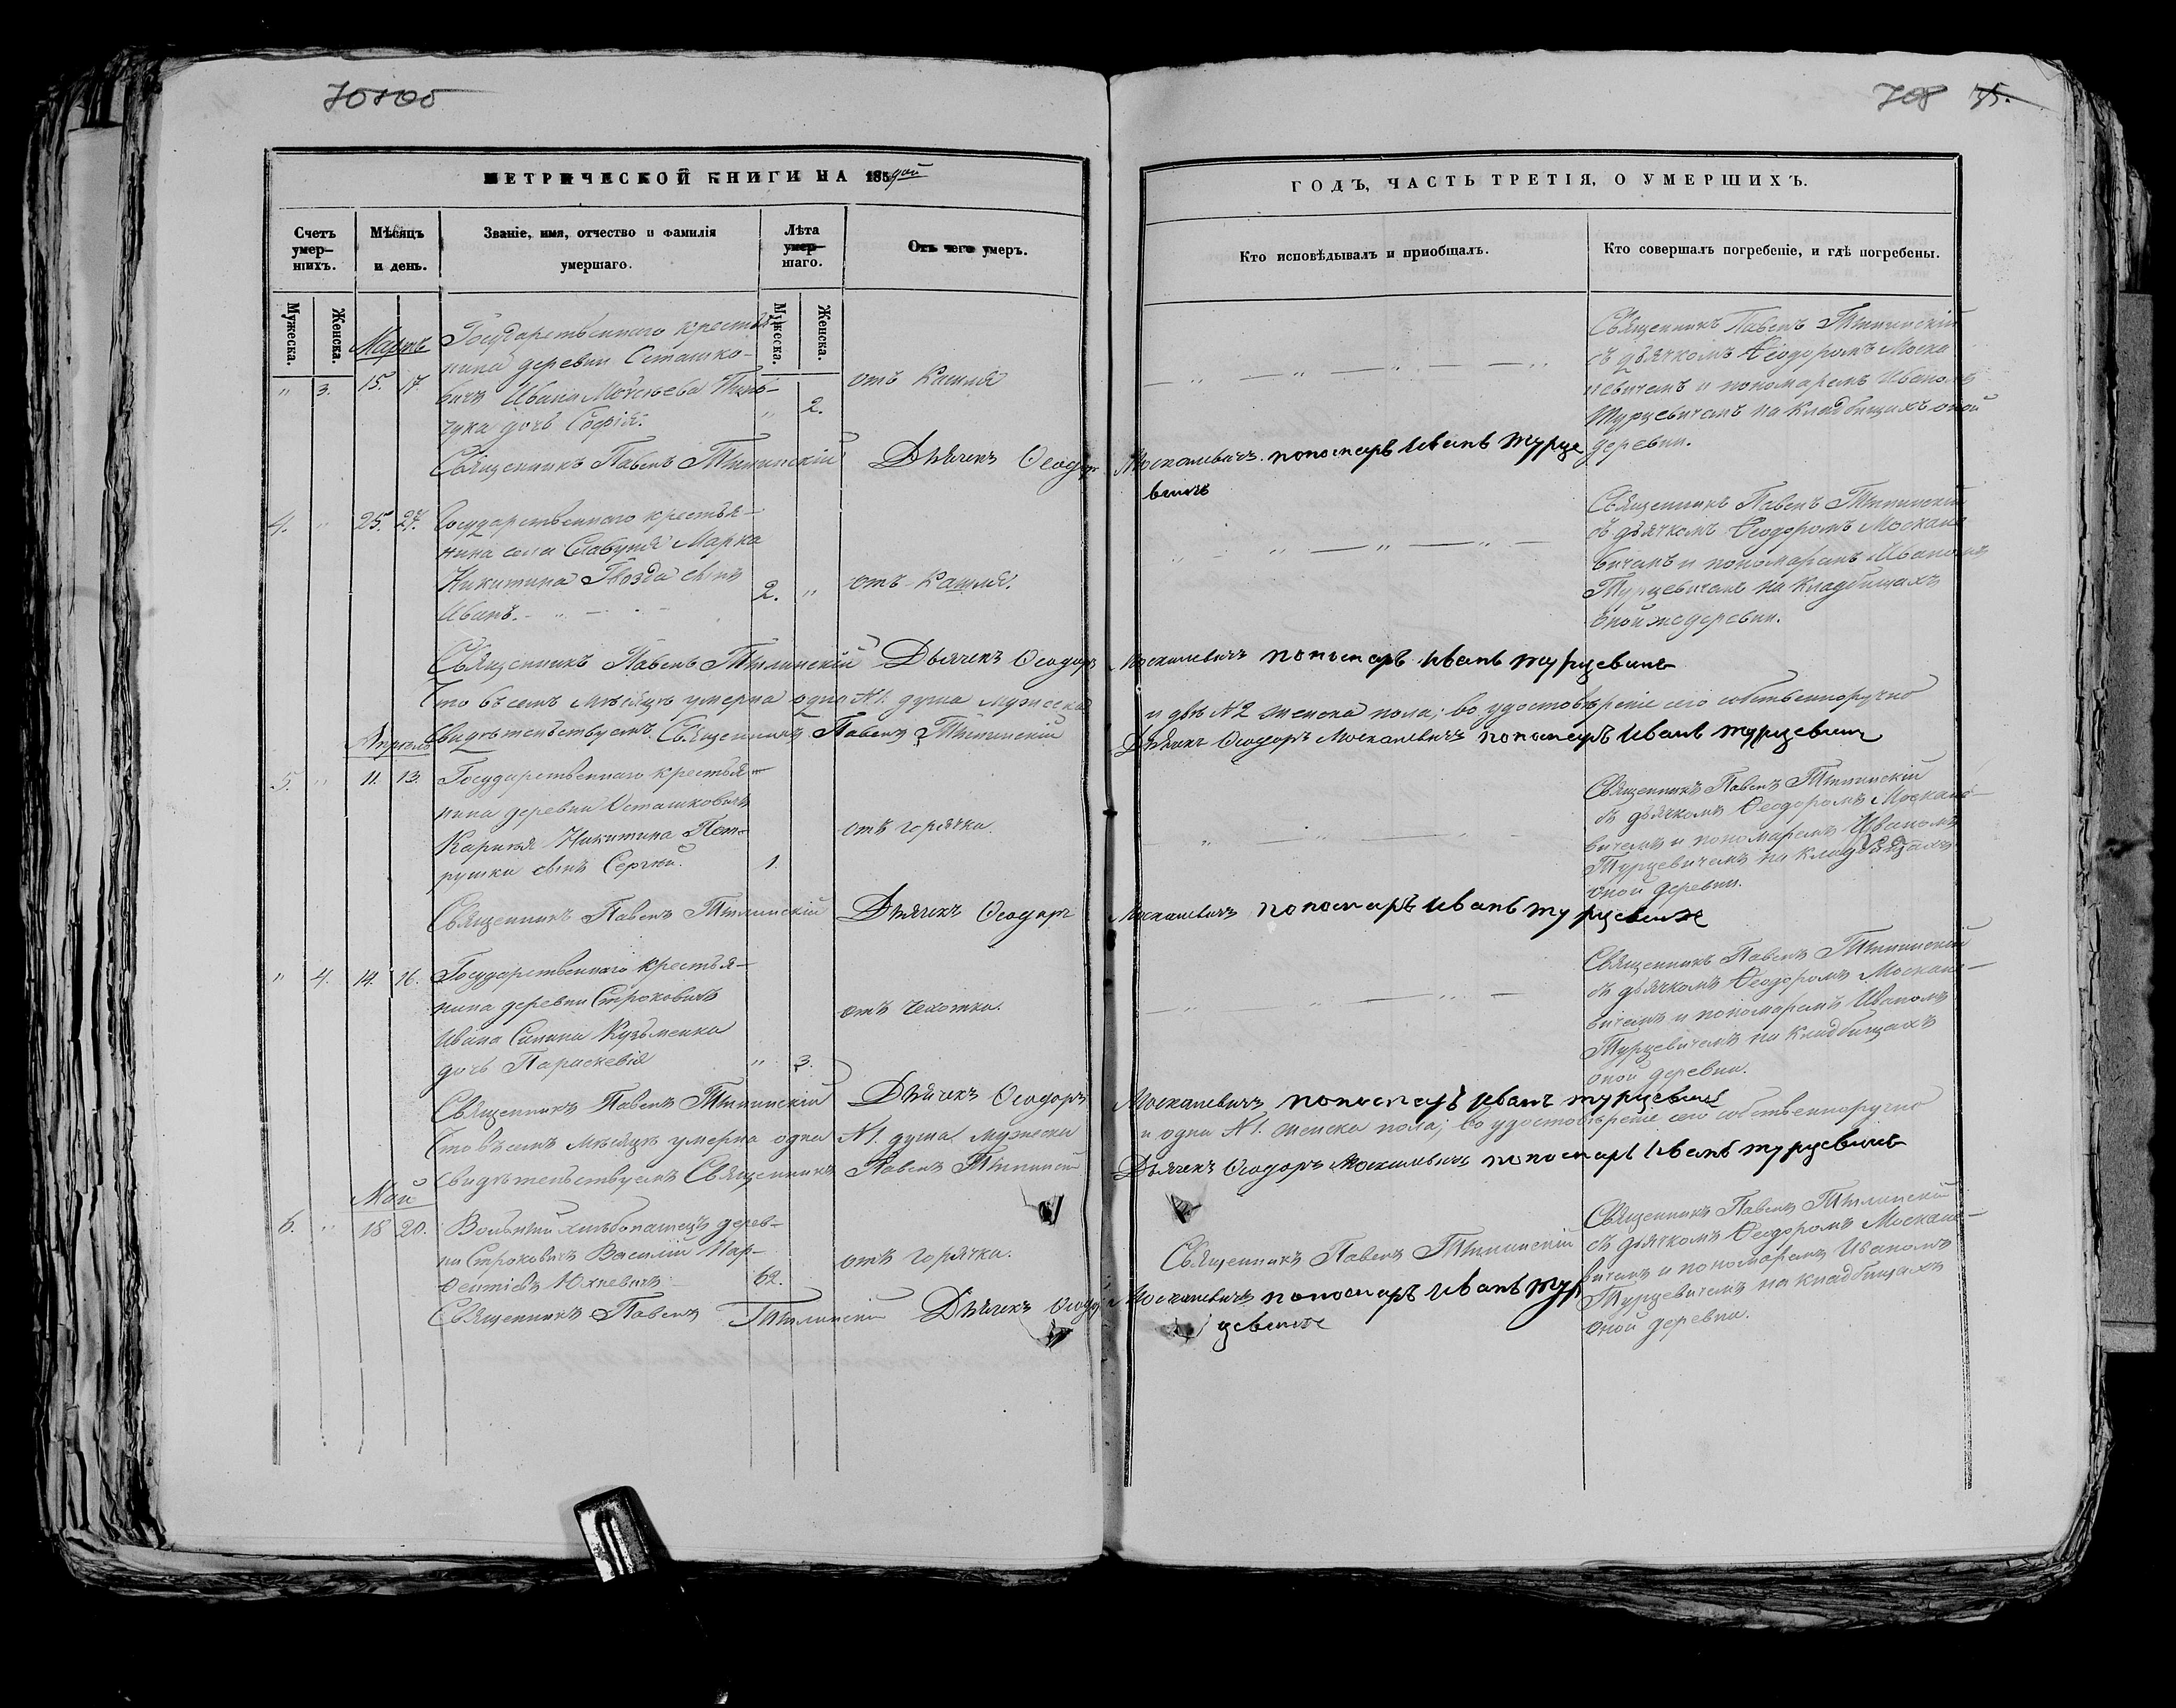 708 75.
МЕТРИЧЕСКОЙ КНИГИ НА 185
ГОДЪ, ЧАСТЬ ТРЕТІЯ, О УМЕРШИХЪ.
Счетъ умер-
шихъ.
Мѣсяцъ
и день.
Званіе, имя, отчество и фамилія
умершаго.
Лѣта
умер-
шаго.
Отъ чего умеръ.
Кто исповѣдывалъ и пріобщалъ.
Кто совершалъ погребеніе, и гдѣ погребены.
Мужеска.
Женска.
Мужеска.
Женска.
Мартъ
" 3. 15. 17.
Государственнаго крестья-
нина деревни Осташко-
вичъ Ивана
дочь Софія.
" 2.
отъ Кашля
Священникъ Павелъ
съ дьячкомъ Ѳеодоромъ Моска
левичемъ и пономаремъ Иваномъ
Турцевичемъ на кладбищахъ оной
деревни.
Священникъ Павелъ Дьячекъ Ѳеодоръ Москалевичъ пономаръ Иванъ Турце
вичъ
4. " 25. 27.
Государственнаго крестья-
нина села Слабуня Марка
Никитина Гвозда сынъ
Иванъ.
2. "
отъ Кашля.
Священникъ Павелъ
съ дьячкомъ Ѳеодоромъ Москале
вичемъ и пономаремъ Иваномъ
Турцевичемъ на кладбищахъ
оной же деревни.
Священникъ Павелъ Дьячекъ Ѳеодоръ Москалевичъ пономаръ Иванъ Турцевичъ
Что въ семъ мѣсяцѣ умерла одна №1. душа мужеска и двѣ №2 женска пола; во удостовѣреніе сего собственноручно
свидѣтельствуемъ. Священникъ Павелъ Дьячекъ Ѳеодоръ Москалевичъ пономаръ Иванъ Турцевичъ
Апрель
5. " 11. 13.
Государственнаго крестья-
нина деревни Осташковичъ
Никитина Пет-
рушки сынъ Сергѣй.
1.
отъ горячки.
Священникъ Павелъ
съ дьячкомъ Ѳеодоромъ Москале-
вичемъ и пономаремъ Иваномъ
Турцевичемъ на кладбищахъ
оной деревни.
Священникъ Павелъ Дьячекъ Ѳеодоръ Москалевичъ пономаръ Иванъ Турцевичъ
" 4. 14. 16.
Государственнаго крестья-
нина деревни Строковичъ
Ивана Кузьменка
дочь Параскевія
" 3.
отъ чехотки.
Священникъ Павелъ
съ дьячкомъ Ѳеодоромъ Москале-
вичемъ и пономаремъ Иваномъ
Турцевичемъ на кладбищахъ
оной деревни.
Священникъ Павелъ Дьячекъ Ѳеодоръ Москалевичъ пономаръ Иванъ Турцевичъ
Что въ семъ мѣсяцѣ умерла одна №1. душа мужеска и одна №1. женска пола; во удостовѣреніе сего собственноручно
свидѣтельствуемъ Священникъ Павелъ Дьячекъ Ѳеодоръ Москалевичъ пономаръ Иванъ Турцевичъ
Май
6. " 18 20.
Вольный хлѣбопашецъ дерев-
ни Строковичъ Василій Пар-
ѳентіевъ Юхневичъ
62.
отъ горячки.
Священникъ Павелъ
Священникъ Павелъ
съ дьячкомъ Ѳеодоромъ Москале-
вичемъ и пономаремъ Иваномъ
Турцевичемъ на кладбищахъ
оной деревни.
Священникъ Павелъ Дьячекъ Ѳеодоръ Москалевичъ пономаръ Иванъ Тур
цевичъ